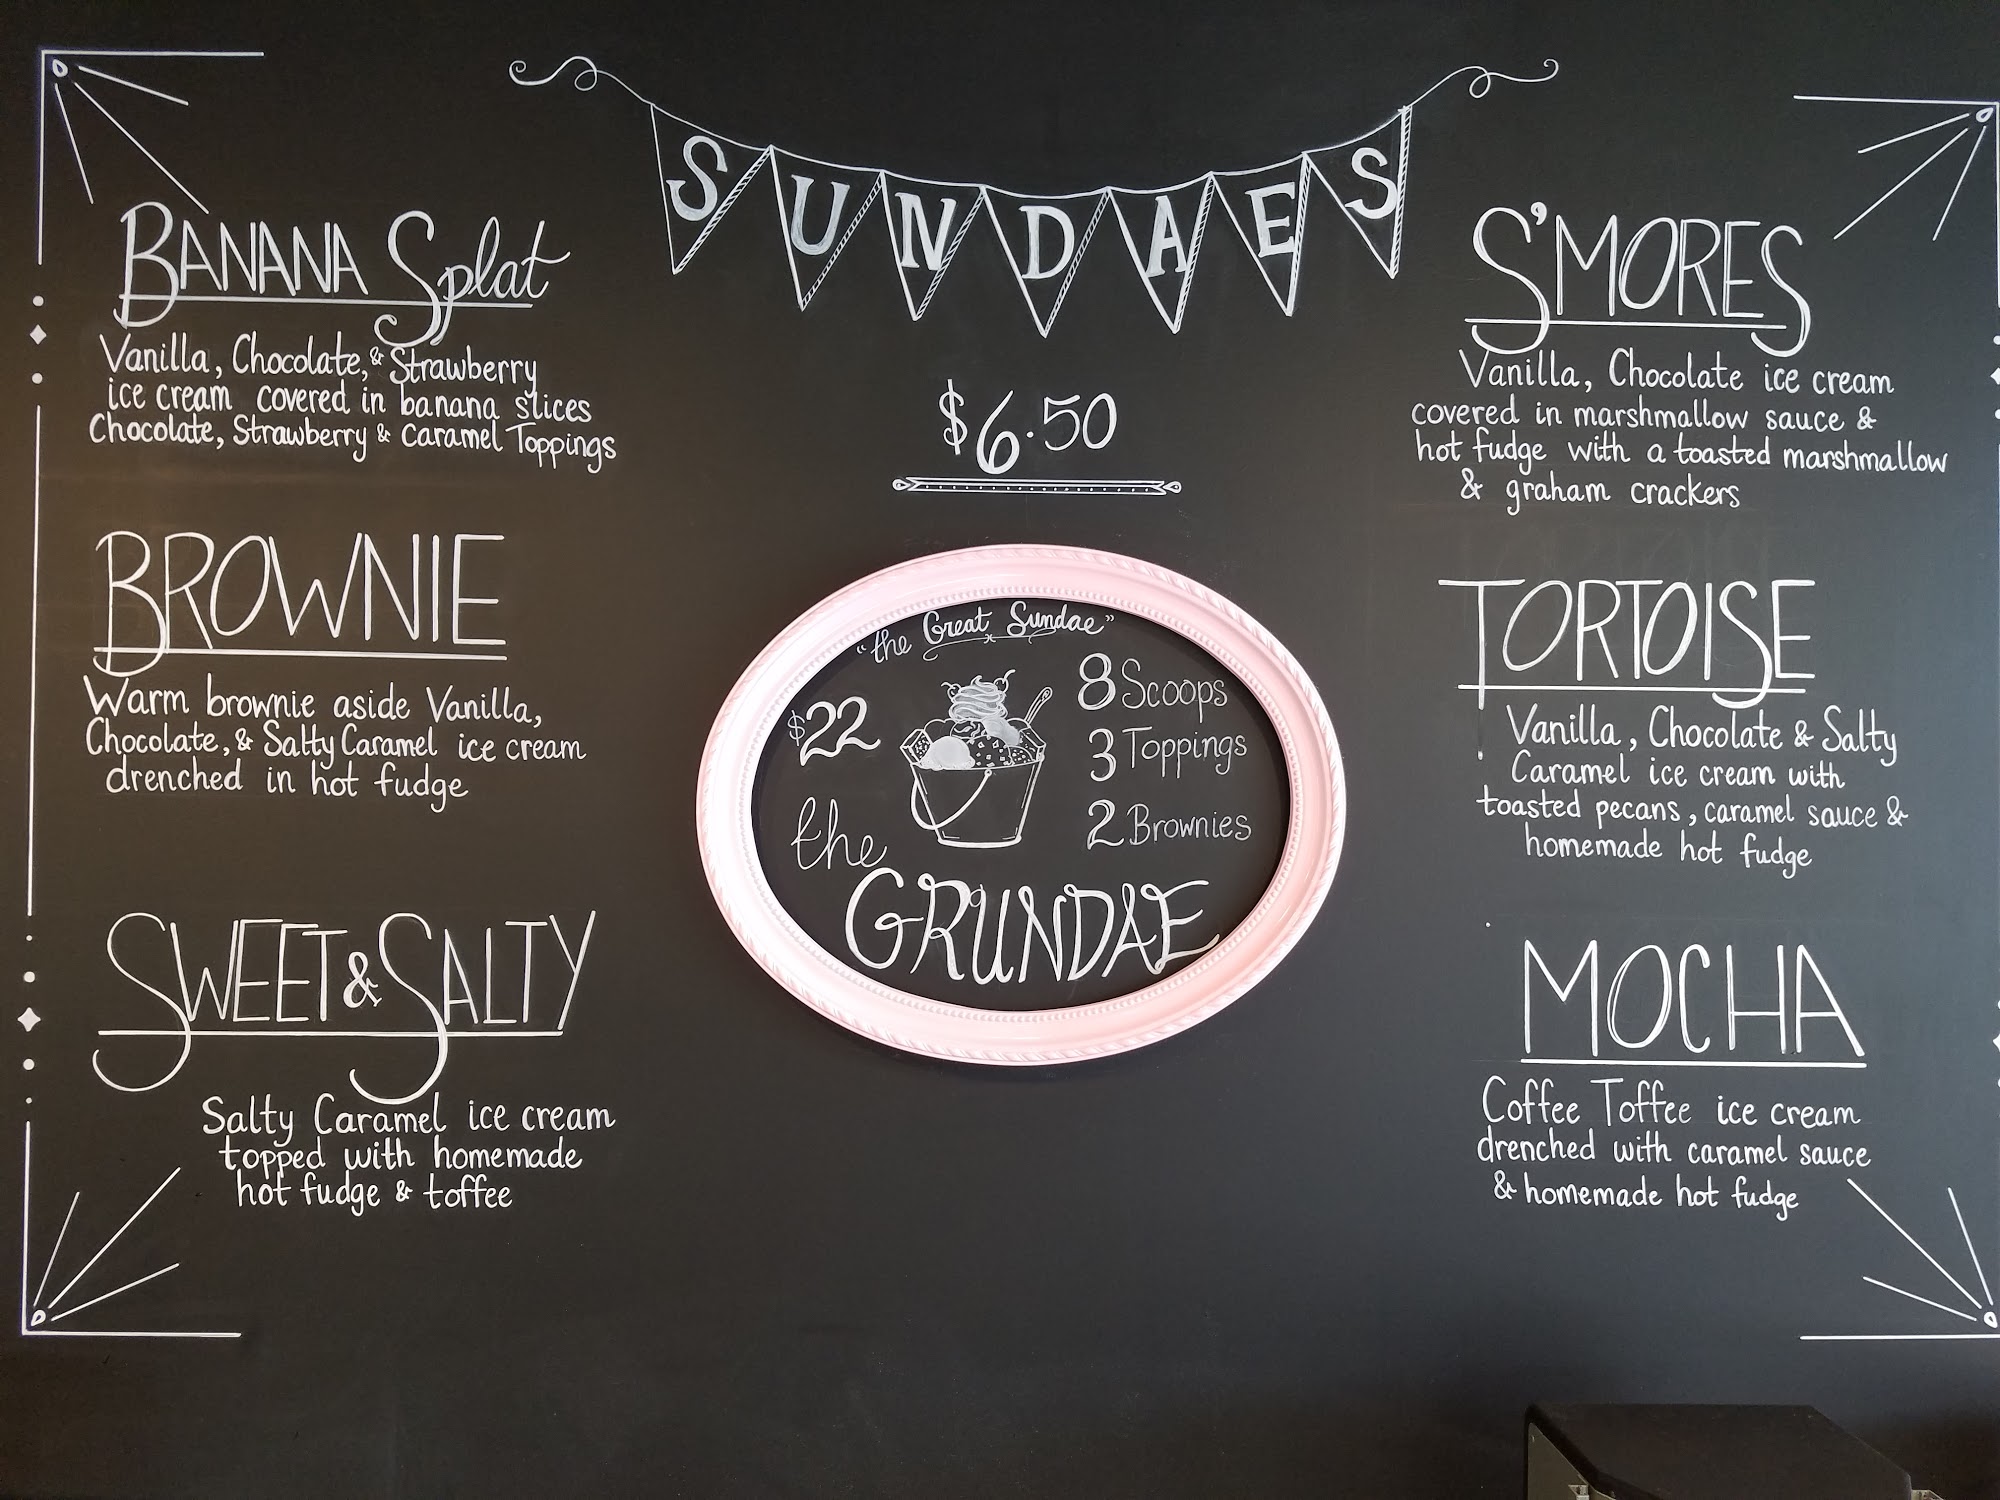 SUNDAES
$6.50
BANANA Splat
Vanilla, Chocolate, & Strawberry
ice cream covered in banana slices
Chocolate, Strawberry & Caramel Toppings
BROWNIE
Warm brownie aside Vanilla,
Chocolate, & Salty Caramel ice cream
drenched in hot fudge
SWEET & SALTY
Salty Caramel ice cream
topped with homemade
hot fudge & toffee
"the Great Sundae"
$22
8 Scoops
3 Toppings
2 Brownies
the
GRUNDAE
S'MORES
Vanilla, Chocolate ice cream
covered in marshmallow sauce &
hot fudge with a toasted marshmallow
& graham crackers
TORTOISE
Vanilla, Chocolate & Salty
Caramel ice cream with
toasted pecans, caramel sauce &
homemade hot fudge
MOCHA
Coffee Toffee ice cream
drenched with caramel sauce
& homemade hot fudge